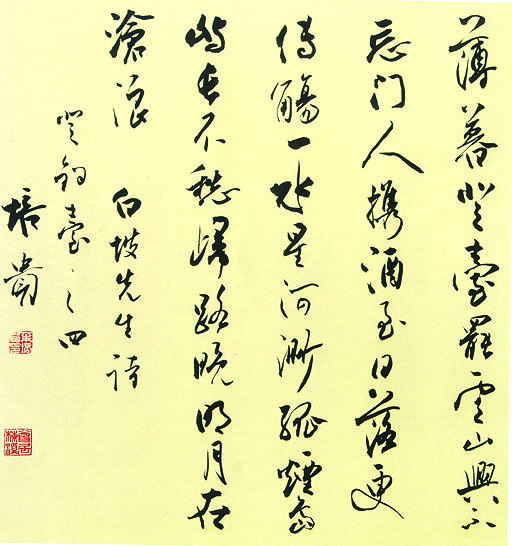 薄暮登臺罷雲山興不
忘门人携酒至日落更
傳觴一水星河渺孤煙島
嶼長不愁歸路晚明月在
滄浪 白坡先生詩
登釣臺之四
培貴